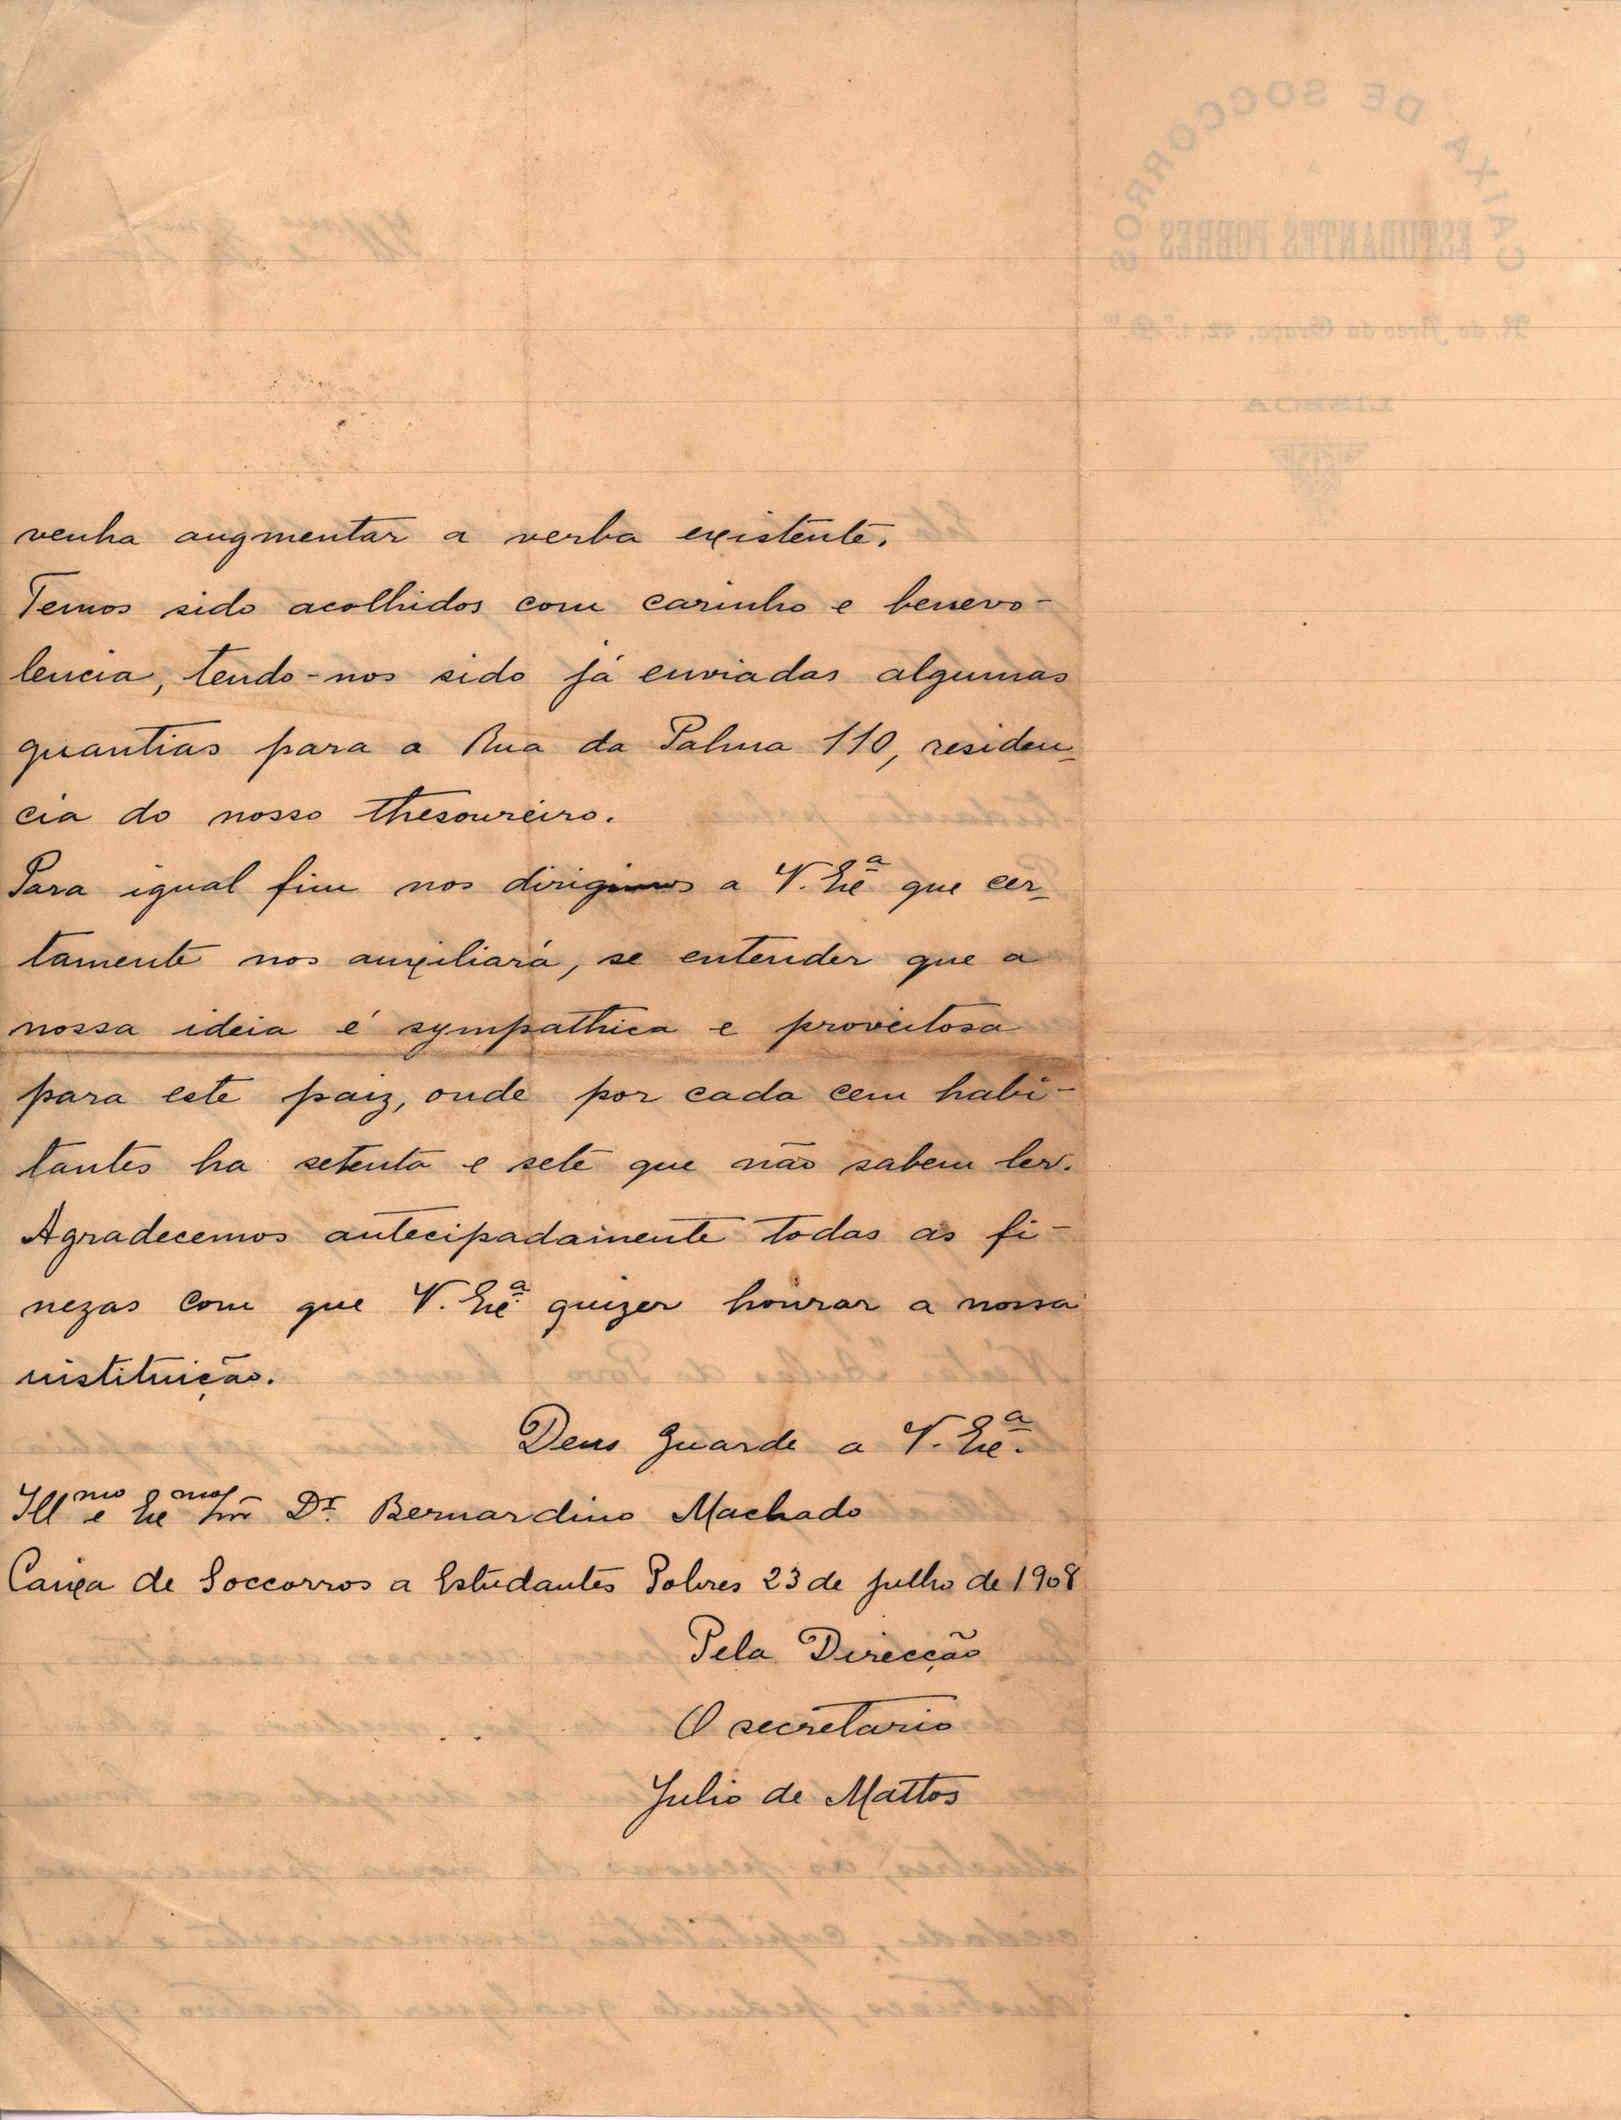 venha augmentar a verba existente.
Temos sido acolhidos com carinho e benevo-
lencia, tendo-nos sido já enviadas algumas
quantias para a Rua da Palma 110, residen-
cia do nosso thesoureiro.
Para igual fim nos dirigimos a V. Exª que cer-
tamente nos auxiliará, se entender que a
nossa ideia é sympathica e proveitosa
para este paiz, onde por cada cem habi-
tantes ha setenta e sete que não sabem ler.
Agradecemos antecipadamente todas as fi-
nezas com que V. Exª quizer honrar a nossa
instituição.
Deus Guarde a V. Exª.
Illmo e Exmo Snr Dr. Bernardino Machado
Caixa de Soccorros a Estudantes Pobres 23 de julho de 1908
Pela Direcção
O secretario
Julio de Mattos
CAIXA DE SOCCORROS
A
ESTUDANTES POBRES
R. do Arco da Graça, 42, 1.º D.to
LISBOA